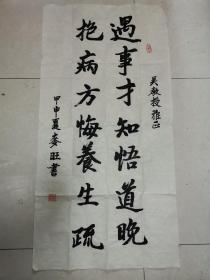 吴教授雅正
遇事才知悟道晚
抱病方悔養生疏
甲申夏麥旺書